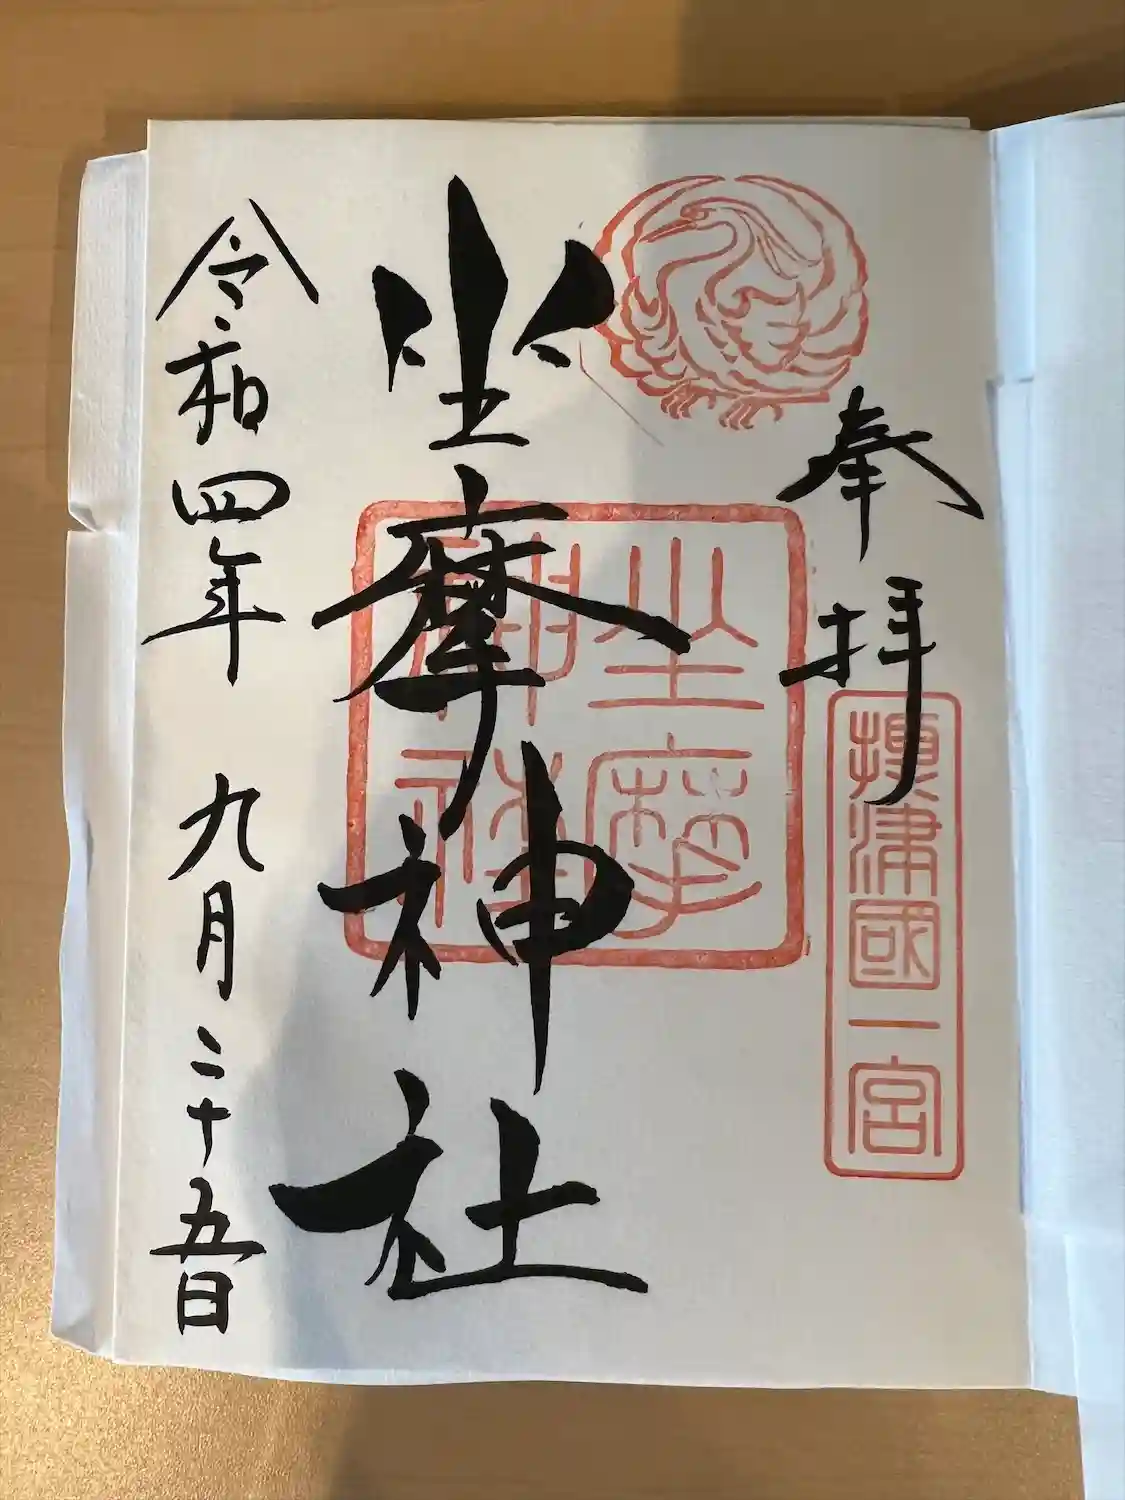 奉拝
攝津國一宮
坐摩神社
坐摩神社
令和四年 九月二十五日